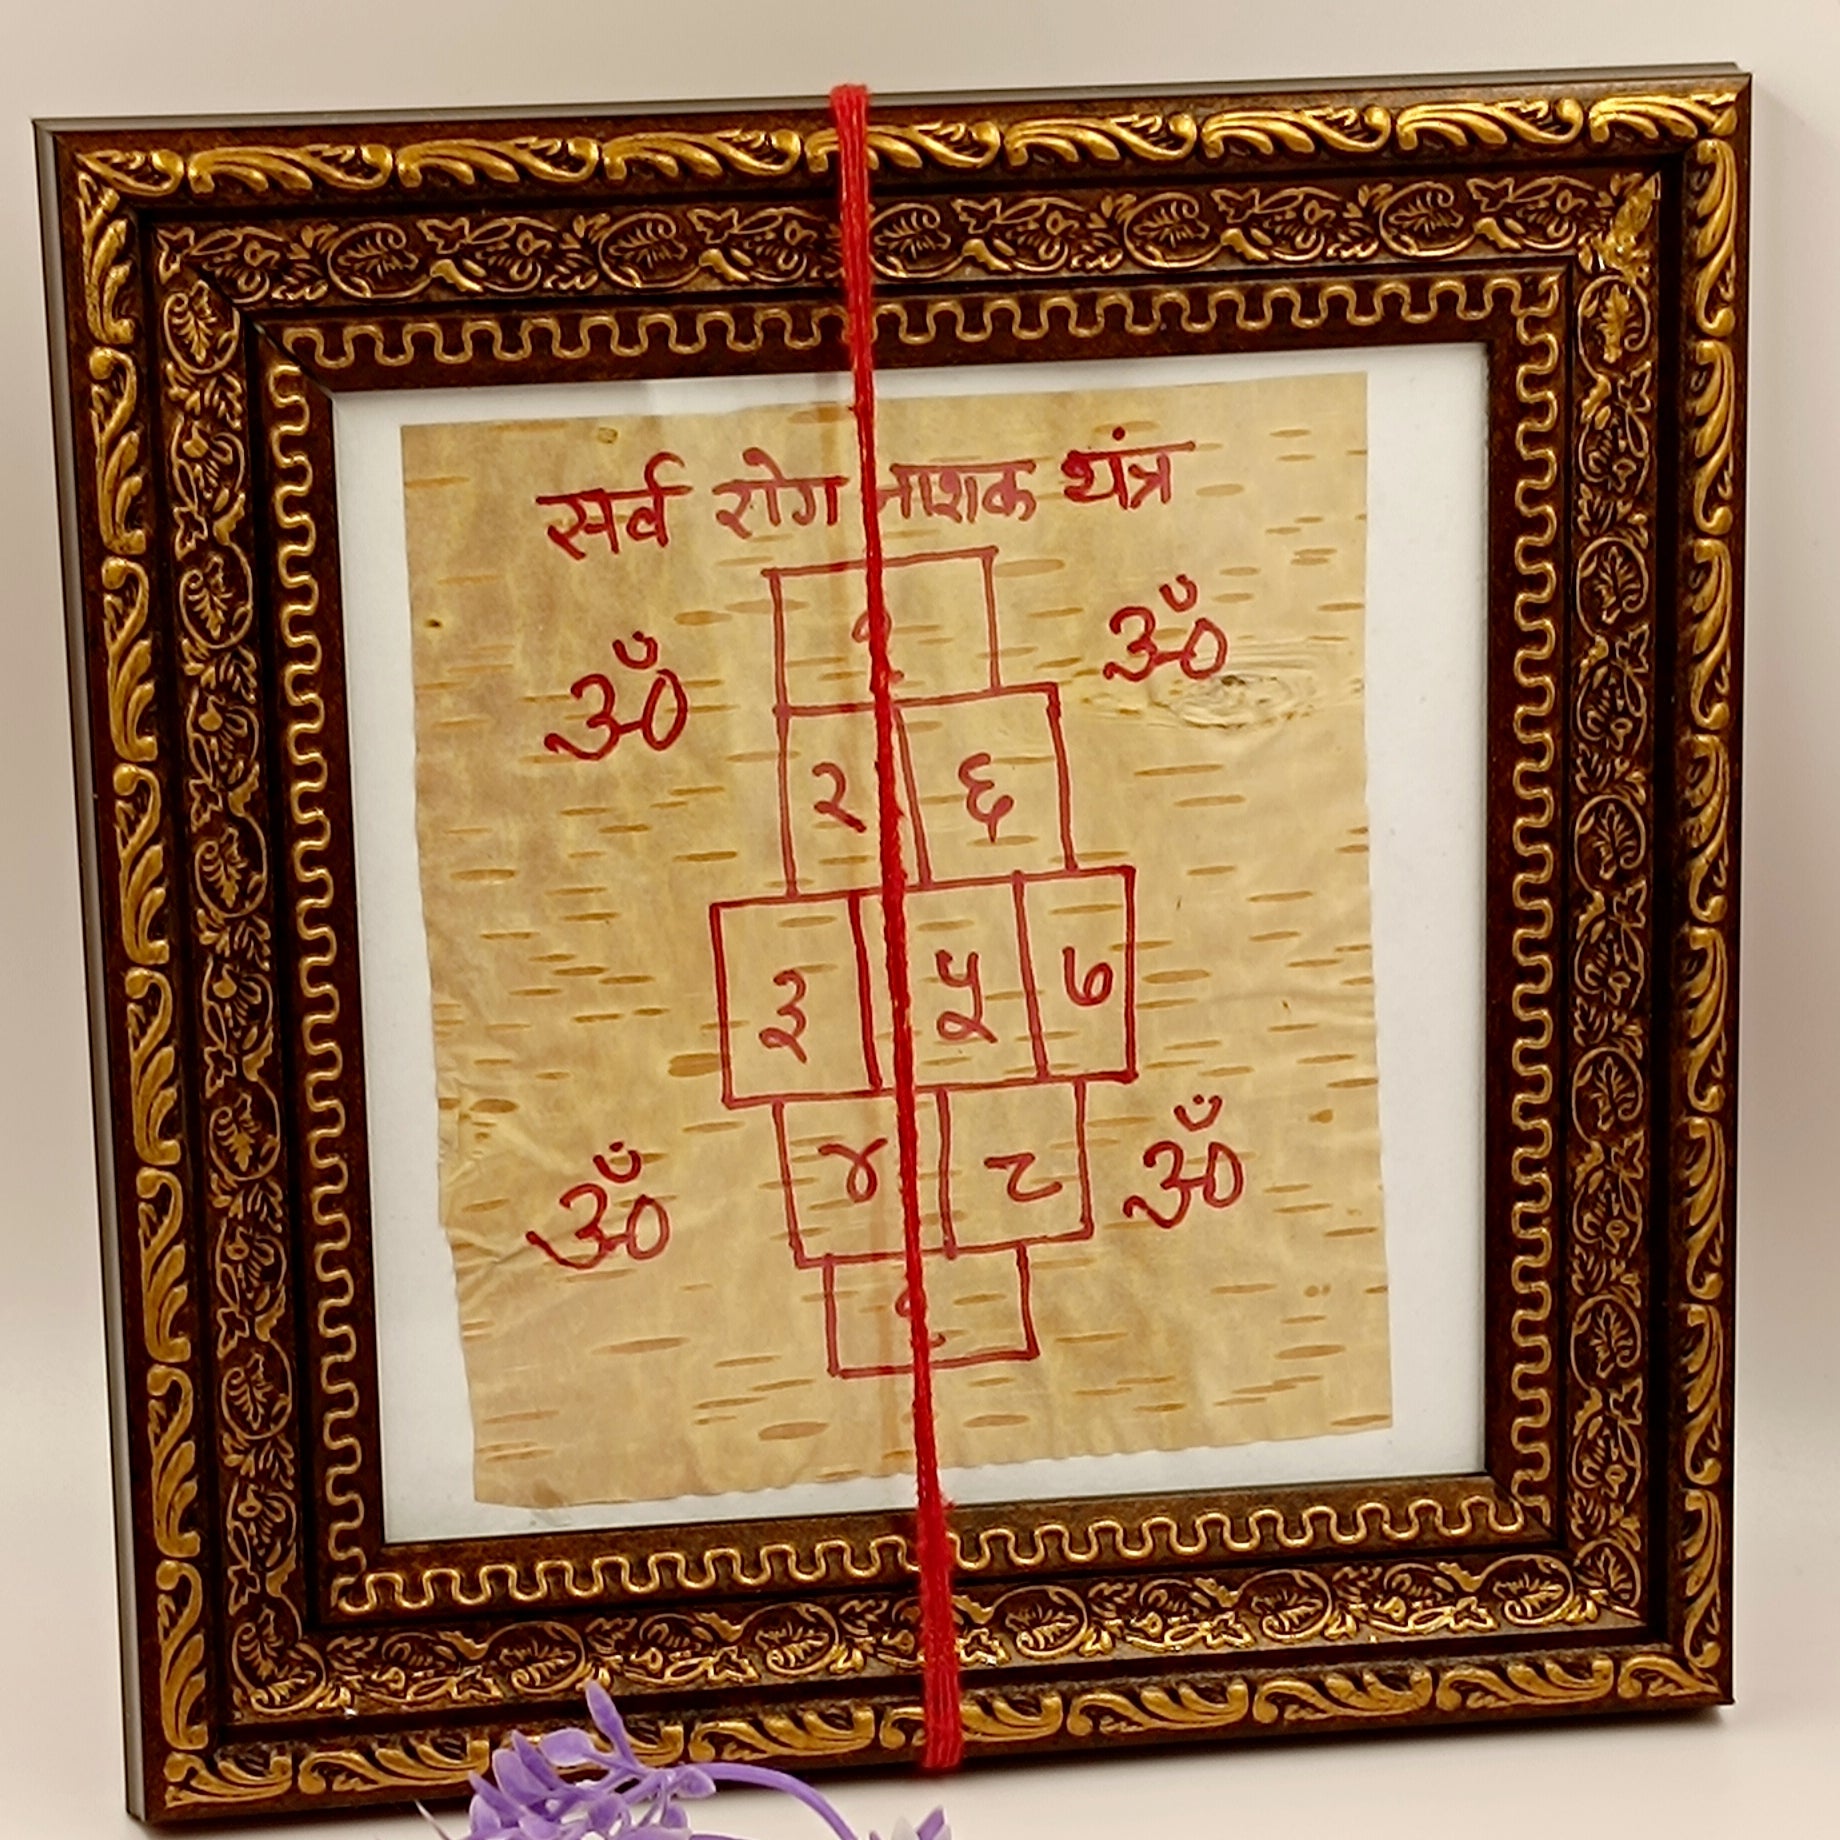 सर्व रोग नाशक यंत्र
ॐ ॐ
२ ६
३ ५ ७
४ ८
ॐ ॐ